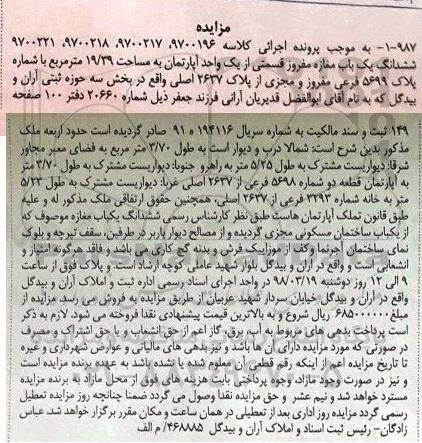 مزایده
۹۸۷-۱- به موجب پرونده اجرائی کلاسه ۹۷۰۰۱۹۶، ۹۷۰۰۲۱۷، ۹۷۰۰۲۱۸، ۹۷۰۰۲۲۱
ششدانگ یک باب مغازه مفروز قسمتی از یک واحد آپارتمان به مساحت ۱۹/۳۹ مترمربع با شماره
پلاک ۵۶۹۹ فرعی مفروز و مجزی از پلاک ۲۶۳۷ اصلی واقع در بخش سه حوزه ثبتی آران و
بیدگل که به نام آقای ابوالفضل قدیریان آرانی فرزند جعفر ذیل شماره ۲۰۶۶۰ دفتر ۱۰۰ صفحه
۱۴۹ ثبت و سند مالکیت به شماره سریال ۱۹۴۱۱۶ ه ۹۱ صادر گردیده است حدود اربعه ملک
مذکور بدین شرح است: شمالا درب و دیوار است به طول ۳/۷۰ متر مربع به فضای معبر مجاور
شرقا: دیواریست مشترک به طول ۵/۲۵ متر به راهرو جنوبا: دیواریست مشترک به طول ۳/۷۰ متر
به آپارتمان قطعه دو شماره ۵۶۹۸ فرعی از ۲۶۳۷ اصلی غربا: دیواریست مشترک به طول ۵/۲۳
متر به خانه شماره ۳۲۹۳ فرعی از ۲۶۳۷ اصلی، همچنین حقوق ارتفاقی ملک مذکور له و علیه
طبق قانون تملک آپارتمان هاست طبق نظر کارشناس رسمی ششدانگ یکباب مغازه موصوف که
از یکباب ساختمان مسکونی مجزی گردیده و از مصالح دیوار باربر در طرفین، سقف تیرچه و بلوک
نمای ساختمان آجرنما وکف از موزاییک فرش و بدنه گچ کاری می باشد و فاقد هرگونه امتیاز و
انشعابی است و واقع در آران و بیدگل بلوار شهید عاملی کوچه ارشاد است. و پلاک فوق از ساعت
۹ الی ۱۲ روز دوشنبه ۹۸/۰۳/۱۹ در واحد اجرای اسناد رسمی اداره ثبت و املاک آران و بیدگل
واقع در آران و بیدگل خیابان سردار شهید عربیان از طریق مزایده به فروش می رسد مزایده از
مبلغ ۶۸۵۰۰۰۰۰۰ ریال شروع و به بالاترین قیمت پیشنهادی نقدا فروخته می شود. لازم به ذکر
است پرداخت بدهی های مربوط به آب، برق، گاز اعم از حق انشعاب و یا حق اشتراک و مصرف
در صورتی که مورد مزایده دارای آن ها باشد و نیز بدهی های مالیاتی و عوارض شهرداری و غیره
تا تاریخ مزایده اعم از اینکه رقم قطعی آن معلوم شده یا نشده باشد به عهده برنده مزایده است
و نیز در صورت وجود مازاد، وجوه پرداختی بابت هزینه های فوق از محل مازاد به برنده مزایده
مسترد خواهد شد و نیم عشر و حق مزایده نقدا وصول می گردد ضمنا چنانچه روز مزایده تعطیل
رسمی گردد مزایده روز اداری بعد از تعطیلی در همان ساعت و مکان مقرر برگزار خواهد شد. عباس
زادگان- رئیس ثبت اسناد و املاک آران و بیدگل ۴۶۸۸۸۵/ م الف